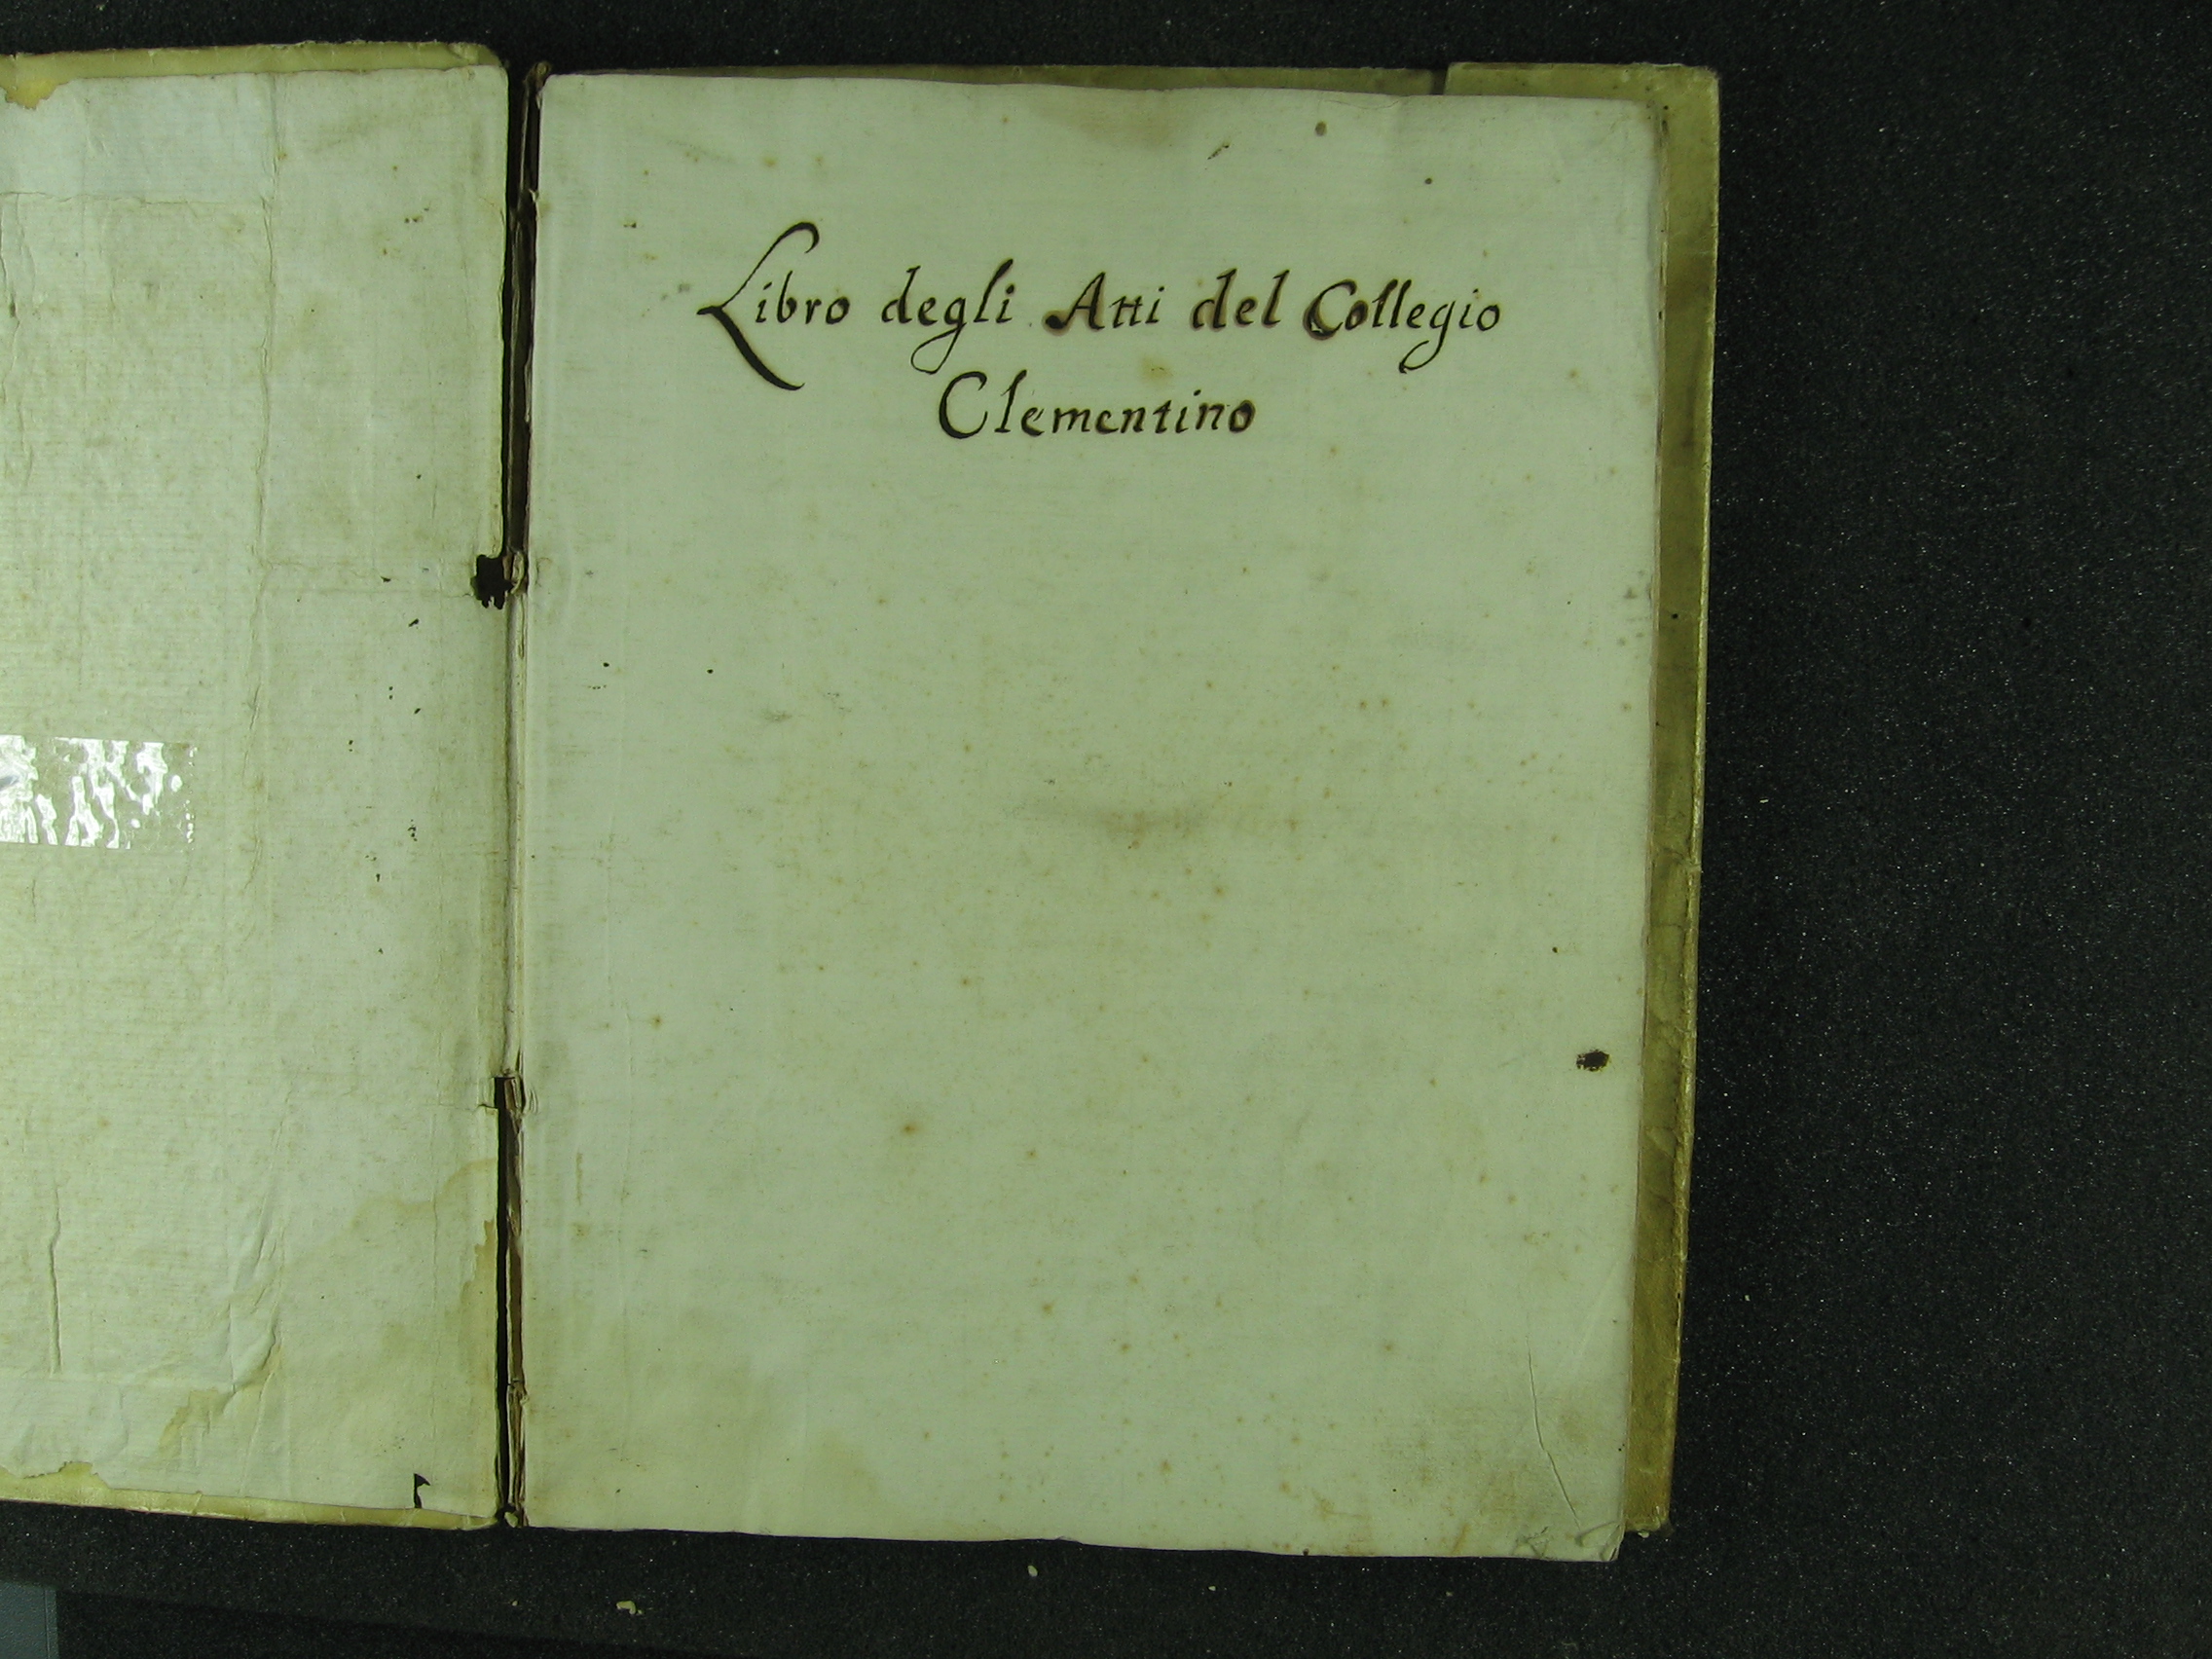 Libro degli Atti del Collegio
Clementino